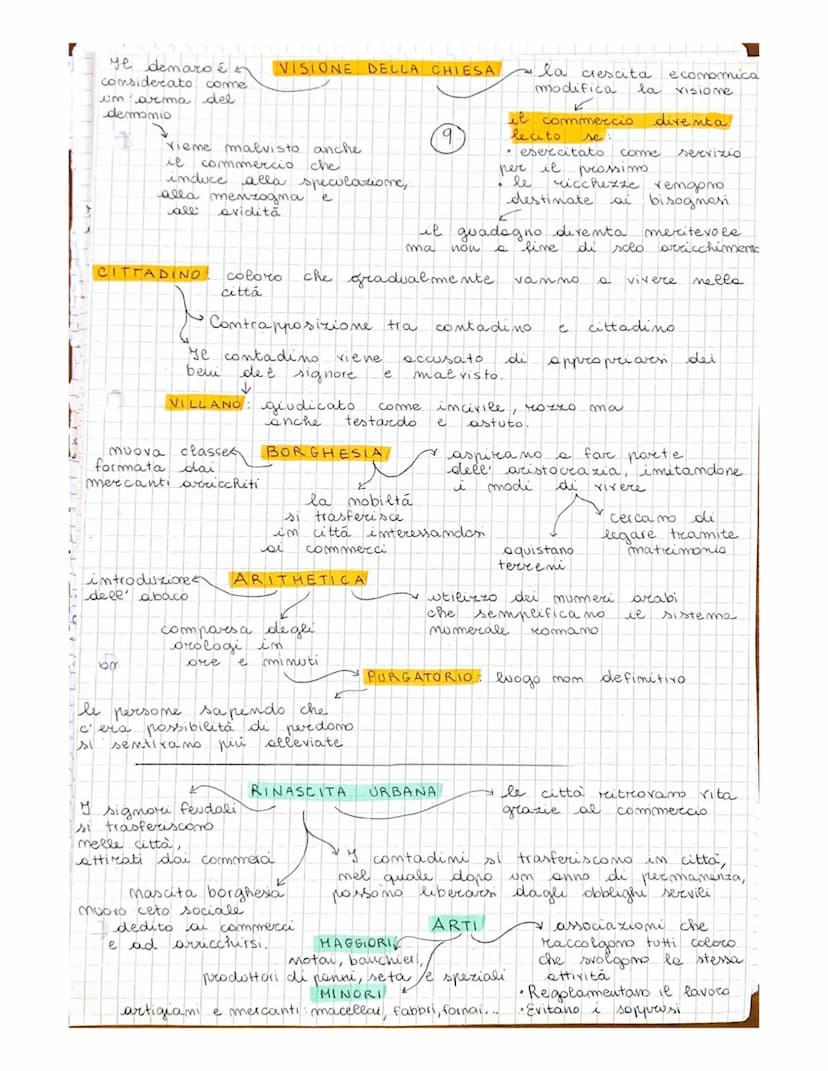 VISIONE DELLA CHIESA
Il denaro è
considerato come
un'arma del
demonio
viene malvisto anche
il commercio che
induce alla speculazione,
alla menzogna e
all' avidità
la crescita economica
modifica la visione
il commercio diventa
lecito se:
• esercitato come servizio
per il prossimo
• le ricchezze vengono
destinate ai bisognosi
il guadagno diventa meritevole
ma non a fine di solo arricchimento
9
CITTADINO: coloro che gradualmente vanno a vivere nella
città
Contrapposizione tra contadino e cittadino
Il contadino viene accusato di appropriarsi dei
beni del signore e malvisto.
VILLANO: giudicato come incivile, rozzo ma
anche testardo e astuto.
BORGHESIA
nuova classe
formata dai
mercanti arricchiti
la nobiltà
si trasferisce
in città interessandosi
ai commerci
aspirano a far parte
dell' aristocrazia, imitandone
i modi di vivere
aquistano
terreni
cercano di
legare tramite
matrimonio
ARITHETICA
introduzione
dell' abaco
comparsa degli
orologi in
ore e minuti
utilizzo dei numeri arabi
che semplificano il sistema
numerale romano
PURGATORIO: luogo non definitivo
le persone sapendo che
c'era possibilità di perdono
si sentivano più alleviate
RINASCITA URBANA
I signori feudali
si trasferiscono
nelle città,
attirati dai commerci
le città ritrovano vita
grazie al commercio
I contadini si trasferiscono in città,
nel quale dopo un anno di permanenza,
possono liberarsi dagli obblighi servili
nascita borghesia
nuovo ceto sociale
dedito ai commerci
e ad arricchirsi.
ARTI
associazioni che
raccolgono tutti coloro
che svolgono la stessa
attività
• Regolamentano il lavoro
• Evitano i soprusi
MAGGIORI
notai, banchieri,
produttori di panni, seta e speziali
MINORI
artigiani e mercanti: macellai, fabbri, fornai...